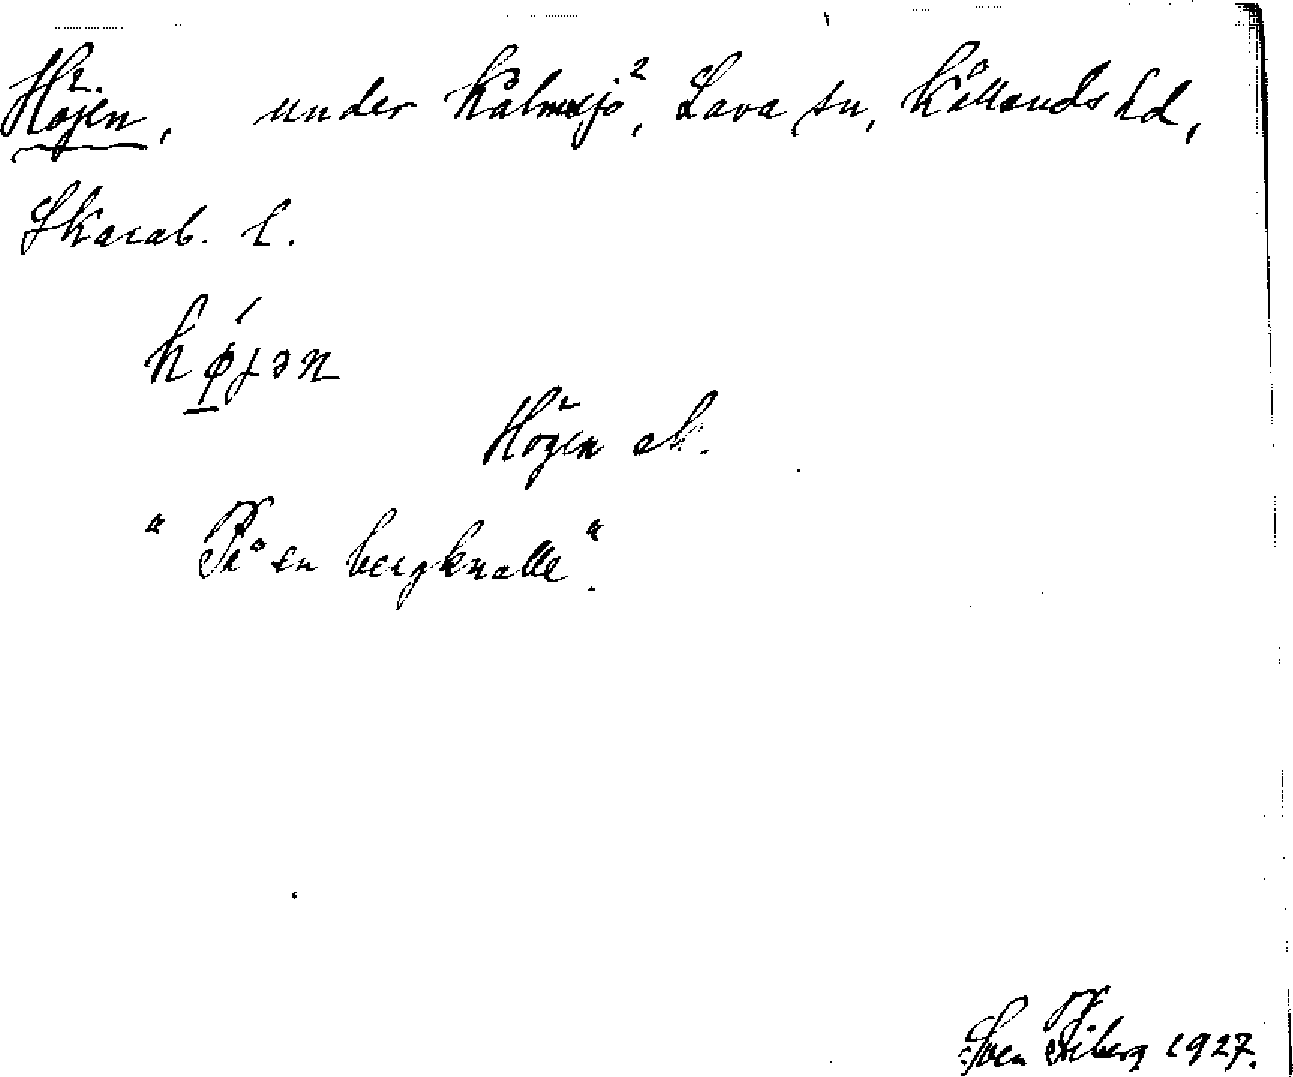 Höjen, under Kålmosjö², Lava sn, Kållands hd,
Skarab. l.
hø̱jən
Höjen ek.
"På en bergknalle".
Sven Friberg 1927.